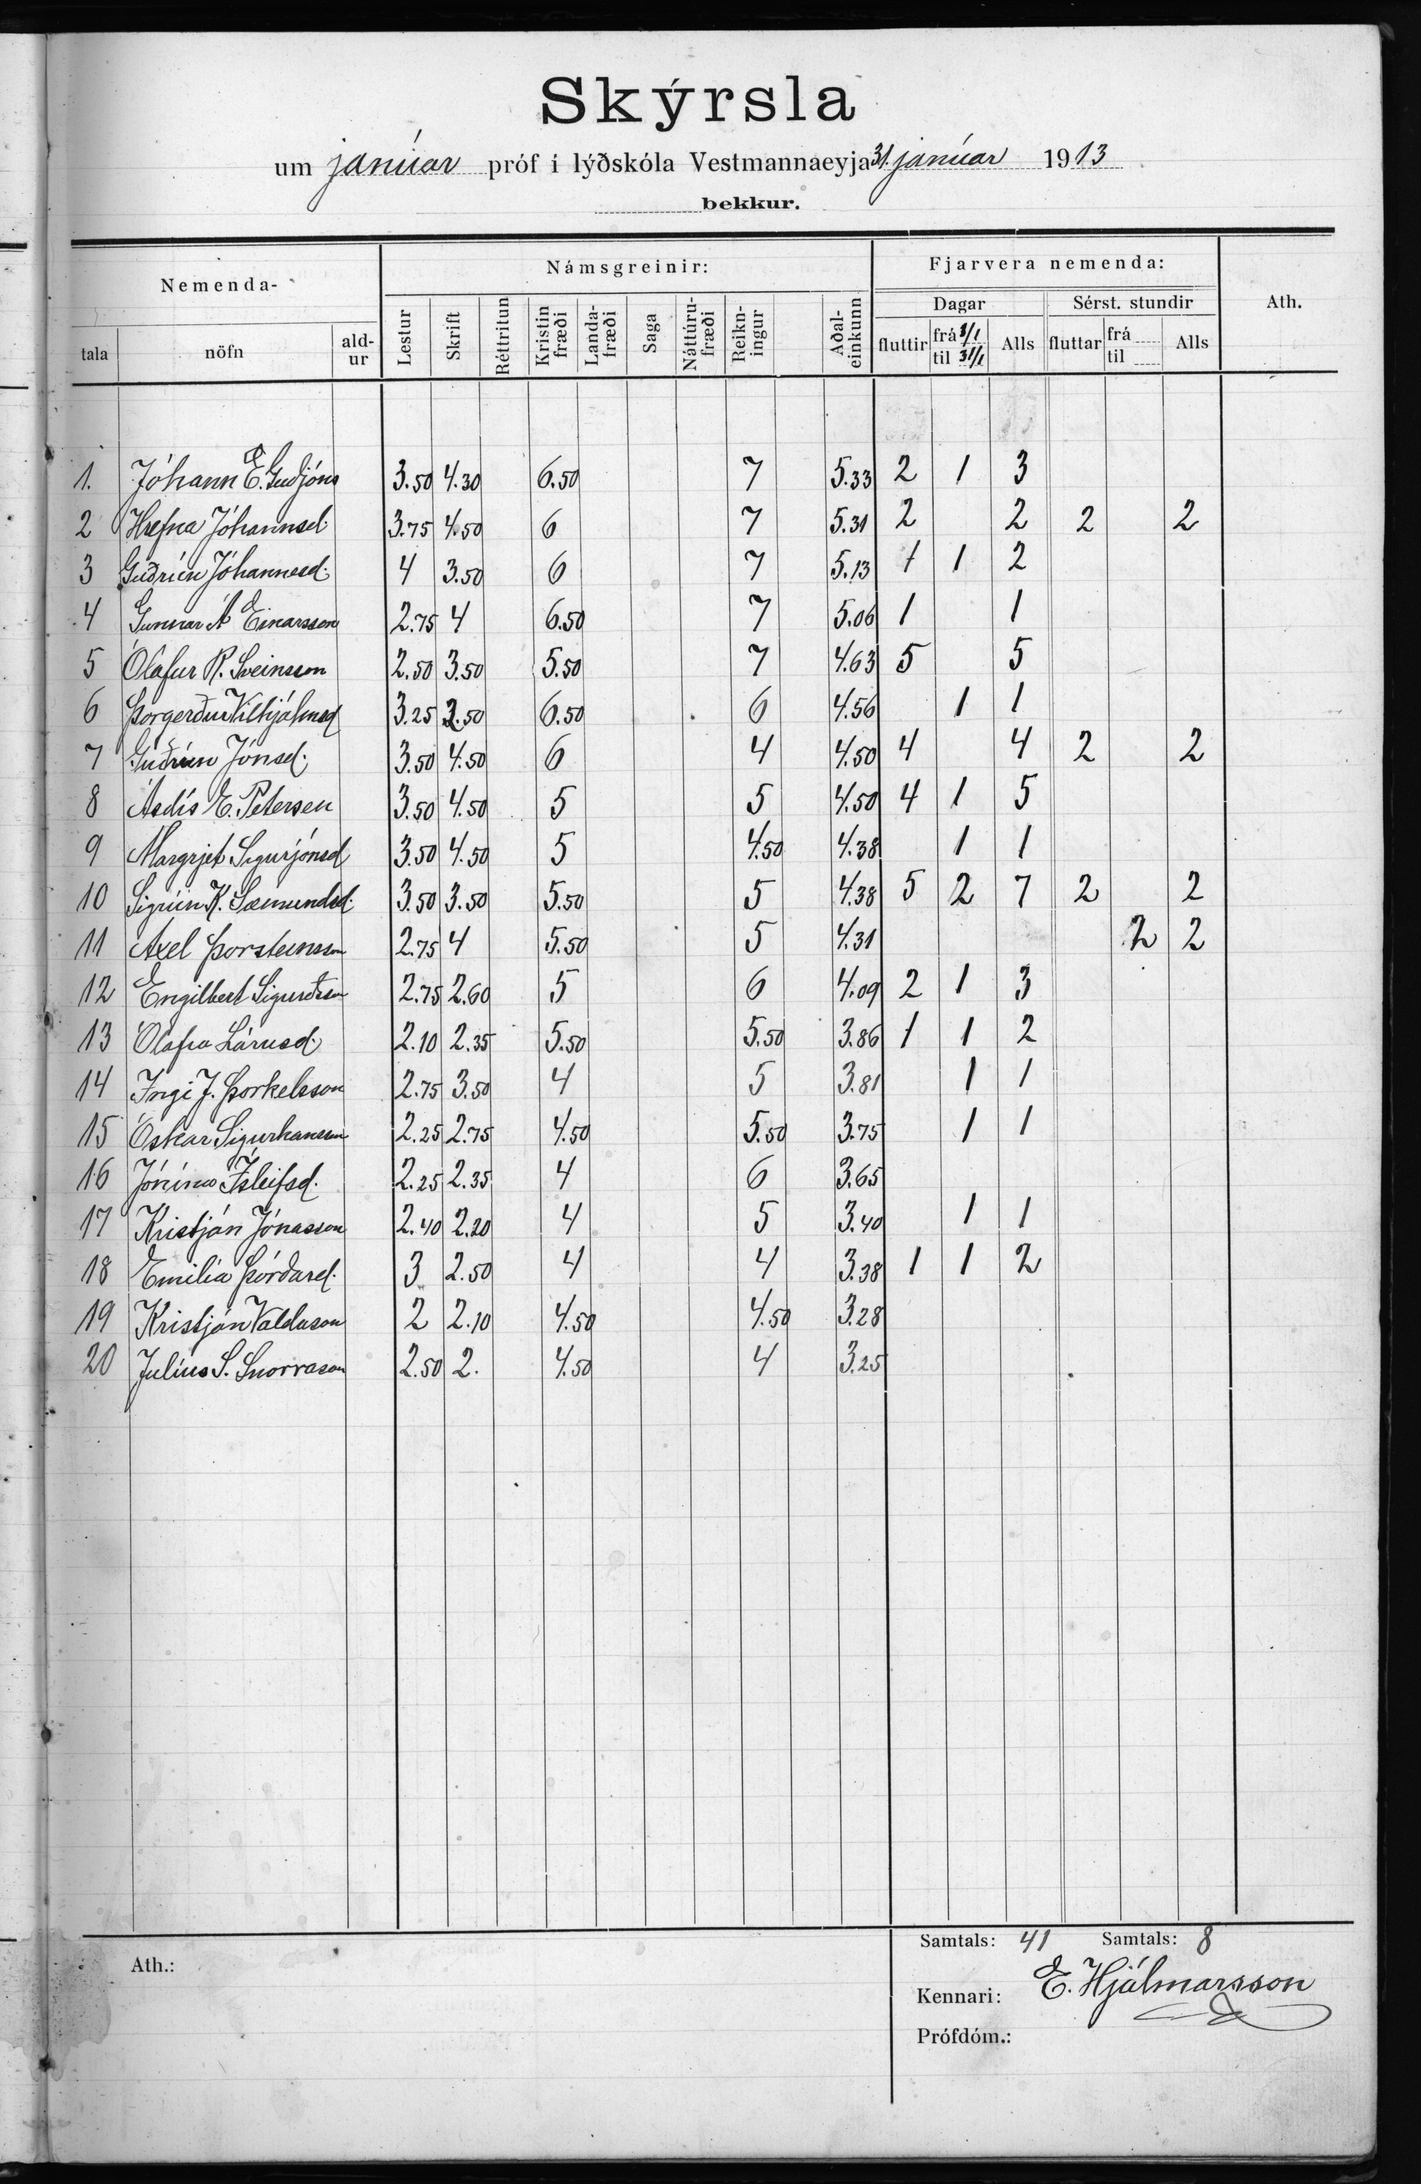 Skýrsla
um janúar próf í lýðskóla Vestmannaeyja 31. janúar 1913
bekkur.
Nemenda- Námsgreinir: Fjarvera nemenda: Ath.
Dagar Sérst. stundir
tala nöfn ald-ur Lestur Skrift Réttritun Kristin fræði Landa-fræði Saga Náttúru-fræði Reikn-ingur Aðal-einkunn fluttir frá 1/1 til 31/1 Alls fluttar frá til Alls
1. Jóhann E. Guðjóns 3.50 4.30 6.50 7 5.33 2 1 3
2 Hrefna Jóhannsd. 3.75 4.50 6 7 5.31 2 2 2 2
3 Guðrún Jóhannesd. 4 3.50 6 7 5.13 1 1 2
4 Gunnar Á Einarsson 2.75 4 6.50 7 5.06 1 1
5 Ólafur R. Sveinsson 2.50 3.50 5.50 7 4.63 5 5
6 Þorgerður Vilhjálmsd 3.25 2.50 6.50 6 4.56 1 1
7 Guðrún Jónsd. 3.50 4.50 6 4 4.50 4 4 2 2
8 Ásdís E. Petersen 3.50 4.50 5 5 4.50 4 1 5
9 Margrjet Sigurjónsd 3.50 4.50 5 4.50 4.38 1 1
10 Sigrún K. Sæmundsd. 3.50 3.50 5.50 5 4.38 5 2 7 2 2
11 Axel Þorsteinsson 2.75 4 5.50 5 4.31 2 2
12 Engilbert Sigurðsson 2.75 2.60 5 6 4.09 2 1 3
13 Ólafía Lárusd. 2.10 2.35 5.50 5.50 3.86 1 1 2
14 Ingi J. Þorkelsson 2.75 3.50 4 5 3.81 1 1
15 Óskar Sigurhansson 2.25 2.75 4.50 5.50 3.75 1 1
16 Jónína Ísleifsd. 2.25 2.35 4 6 3.65
17 Kristján Jónasson 2.40 2.20 4 5 3.40 1 1
18 Emilía Þórðard. 3 2.50 4 4 3.38 1 1 2
19 Kristján Valdason 2 2.10 4.50 4.50 3.28
20 Julíus S. Snorrason 2.50 2. 4.50 4 3.25
Samtals: 41 Samtals: 8
Ath.:
Kennari: E. Hjálmarsson
Prófdóm.: